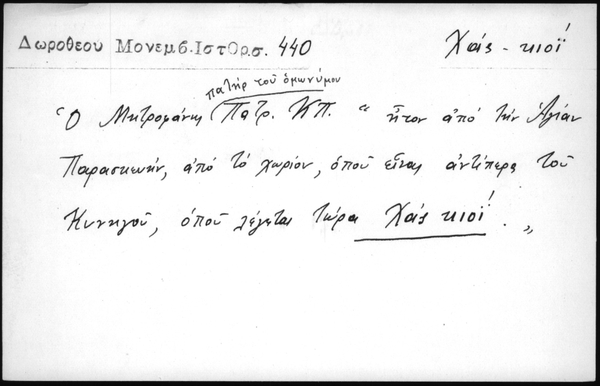 Δωροθεου Μονεμβ. Ιστορ. σ. 440 Χάς - κιοΐ
πατὴρ τοῦ ὁμωνύμου
"Ὁ Μητροφάνης (Πατρ. ΚΠ. " ἦτον ἀπό τὴν Ἁγίαν
Παρασκευήν, ἀπό τὸ χωρίον, ὁποῦ εἶναι ἀντίπερα τοῦ
Κυνηγοῦ, ὁποῦ λέγεται τώρα Χάς κιοΐ. "